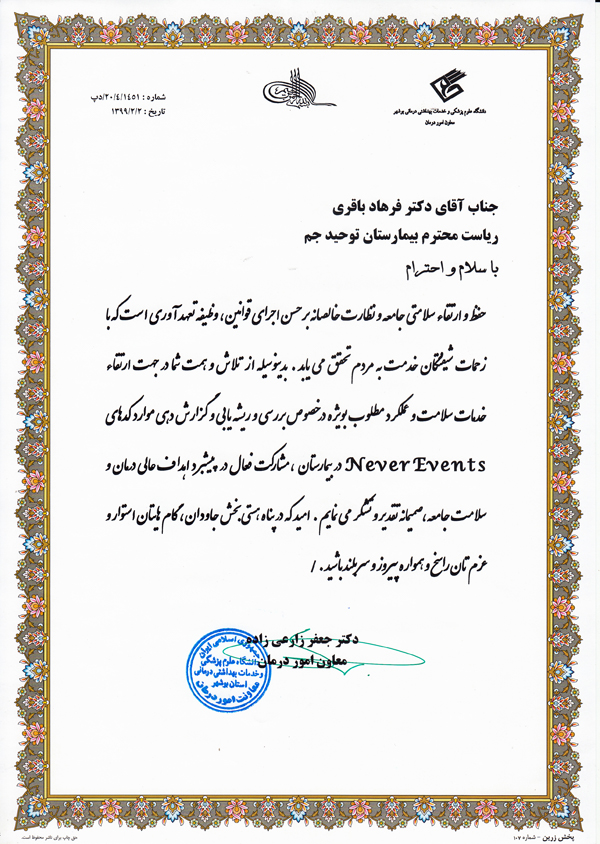 دانشگاه علوم پزشکی و خدمات بهداشتی درمانی بوشهر
معاون امور درمان
شماره : ۲۰/۴/۱۴۵۱/دپ
تاریخ : ۱۳۹۹/۲/۲
جناب آقای دکتر فرهاد باقری
ریاست محترم بیمارستان توحید جم
با سلام و احترام
حفظ و ارتقاء سلامتی جامعه و نظارت خالصانه بر حسن اجرای قوانین، وظیفه تعهد آوری است که با
زحمات شیفتگان خدمت به مردم تحقق می یابد . بدینوسیله از تلاش و همت شما در جهت ارتقاء
خدمات سلامت و عملکرد مطلوب بویژه درخصوص بررسی و ریشه یابی و گزارش دهی موارد کدهای
Never Events در بیمارستان ، مشارکت فعال در پیشبرد اهداف عالی درمان و
سلامت جامعه، صمیمانه تقدیر و تشکر می نمایم . امید که در پناه هستی بخش جاودان، گام هایتان استوار و
عزم تان راسخ و همواره پیروز و سربلند باشید . /
دکتر جعفر زارعی زاده
معاون امور درمان
جمهوری اسلامی ایران
دانشگاه علوم پزشکی
و خدمات بهداشتی درمانی
استان بوشهر
معاونت امور درمان
پخش زرین - شماره ۱۰۷
حق چاپ برای ناشر محفوظ است.